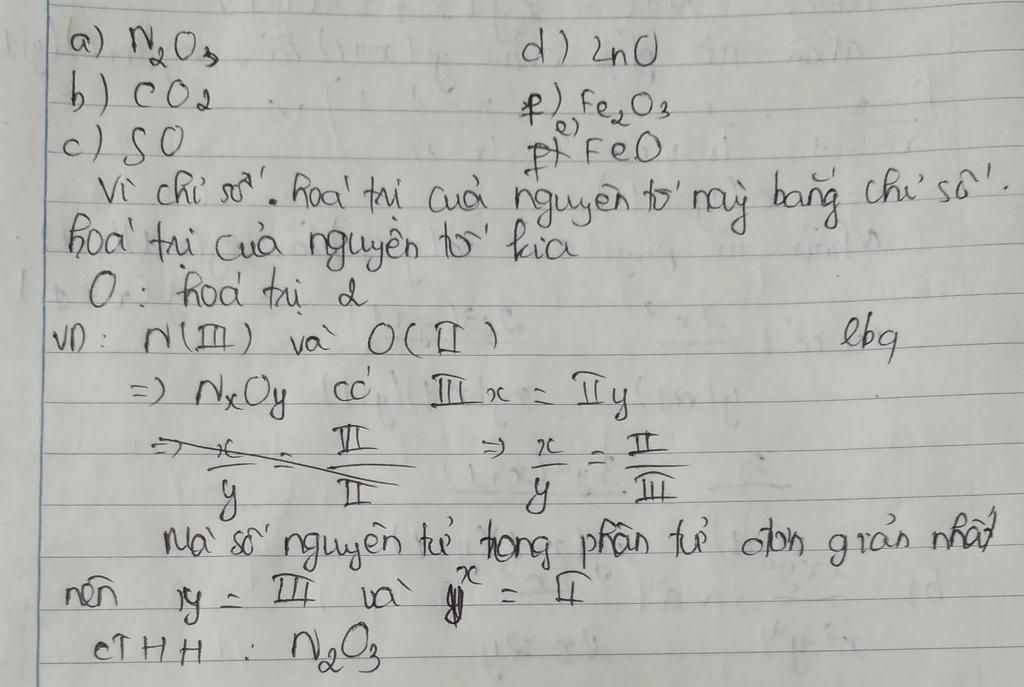 a) N₂O₃ d) ZnO
b) CO₂ f) Fe₂O₃
c) SO e) FeO
Vì chỉ số . hoá trị của nguyên tố này bằng chỉ số .
hoá trị của nguyên tố kia
O : hoá trị 2
VD : N(III) và O(II) lbq
=> NxOy có III x = II y
=> x/y = III/II => x/y = II/III
Mà số nguyên tử trong phân tử đơn giản nhất
nên y = III và x = II
CTHH : N₂O₃